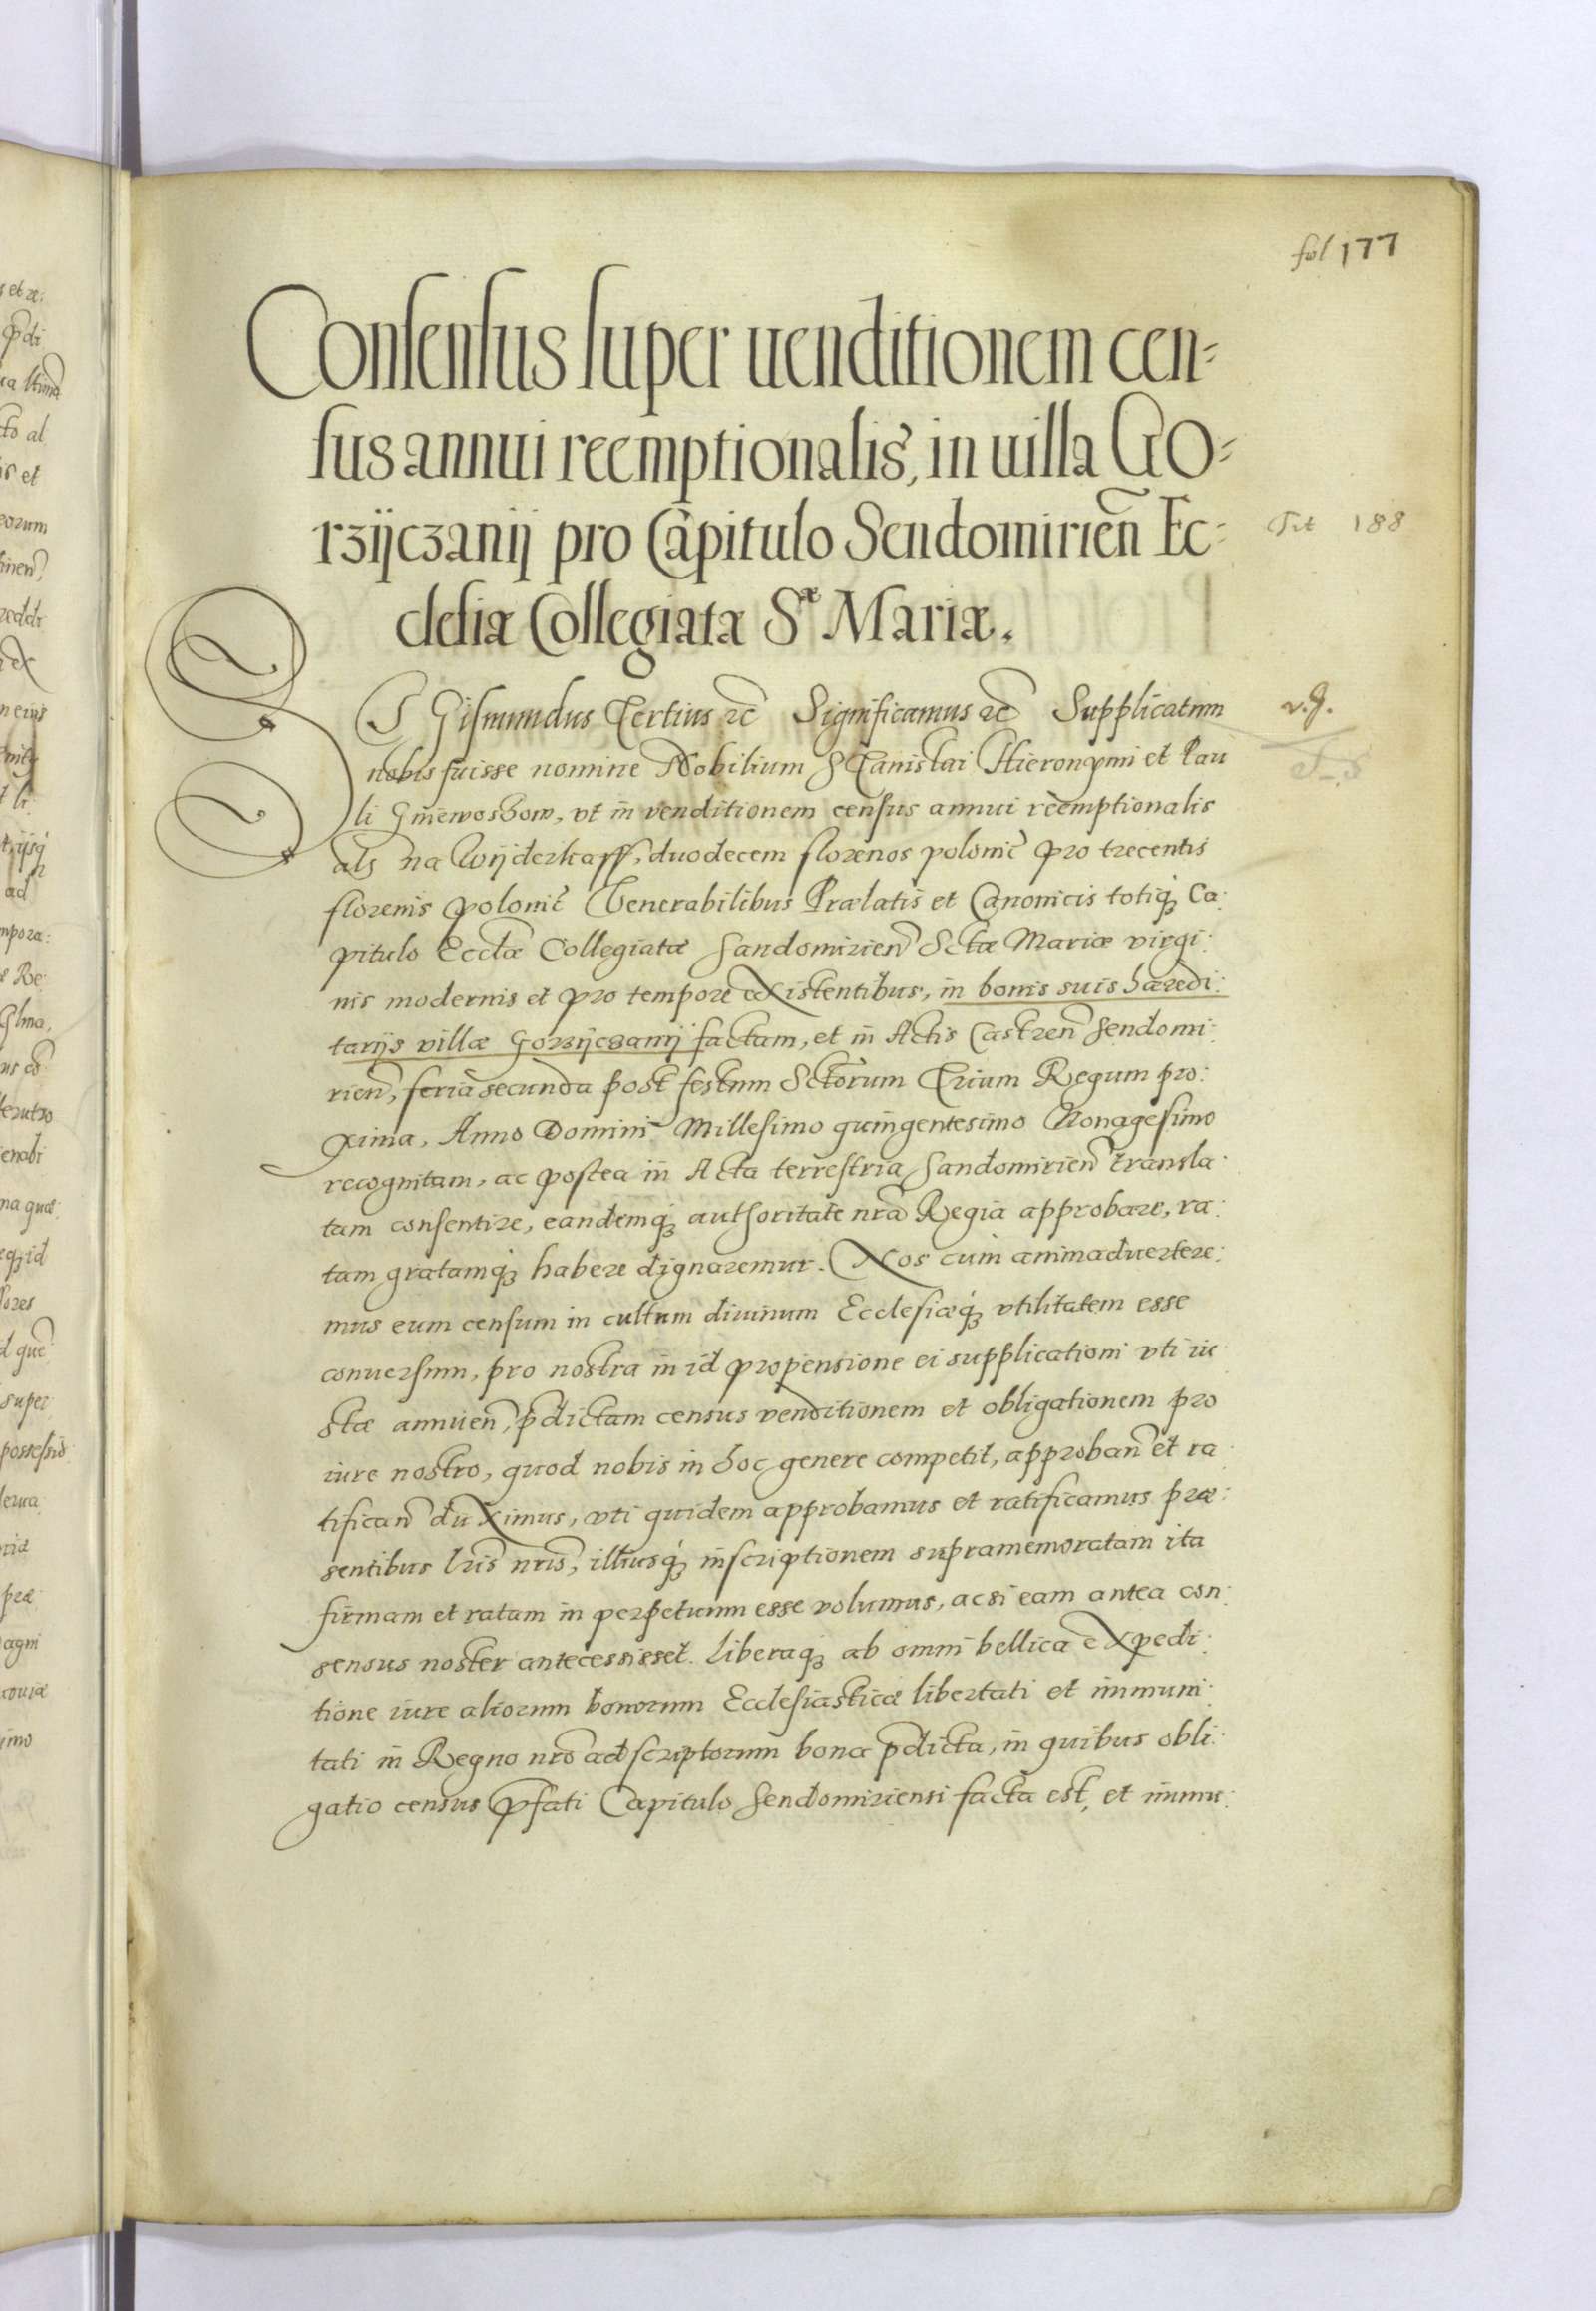 fol 177
Consensus super uenditionem cen=
sus annui reemptionalis, in uilla GO=
rzijczanij pro Capitulo Sendomirien̄ Ec=
clesiæ Collegiatæ Sæ Mariæ.
188
SIGismundus Tertius ꝛc Significamus ꝛc Supplicatum
v. g.
nobis fuisse nomine Nobilium Stanislai Hieronymi et Pau
li Gniewoschow, vt in venditionem census annui reemptionalis
als na Wijderkaff, duodecem florenos polonic̄ pro trecentis
florenis polonic̄ Venerabilibus Prælatis et Canonicis totiq́ꝫ Ca:
pitulo Eccłæ Collegiatæ Sandomirien̄ Sctæ Mariæ virgi:
nis modernis et pro tempore existentibus, in bonis suis hæredi:
tarijs villæ Gorzijczanij factam, et in Actis Castren̄ Sendomi:
rien̄, feria secunda post festum Sctorum Trium Regum pro:
xima, Anno Domini Millesimo quingentesimo Nonagesimo
recognitam, ac postea in Acta terrestria Sandomirien̄ transla:
tam consentire, eandemq́ꝫ authoritate nr̄a Regia approbare, ra:
tam gratamq́ꝫ habere dignaremur. Nos cum animadvertere:
mus eum censum in cultum diuinum Ecclesiæq́ꝫ vtilitatem esse
conuersum, pro nostra in id propensione ei supplicationi vti iu
stæ annuen̄, p̄dictam census venditionem et obligationem pro
iure nostro, quod nobis in hoc genere competit, approban̄ et ra
tifican̄ duximus, vti quidem approbamus et ratificamus præ:
sentibus lr̄is nr̄is, illiusq́ꝫ inscriptionem supramemoratam ita
firmam et ratam in perpetuum esse volumus, ac si eam antea con:
sensus noster antecessisset. Liberaq́ꝫ ab omni bellica expedi:
tione iure aliorum bonorum Ecclesiasticæ libertati et immuni:
tati in Regno nr̄o adscriptorum bona p̄dicta, in quibus obli:
gatio census p̄fati Capitulo Sendomiriensi facta est, et immu: